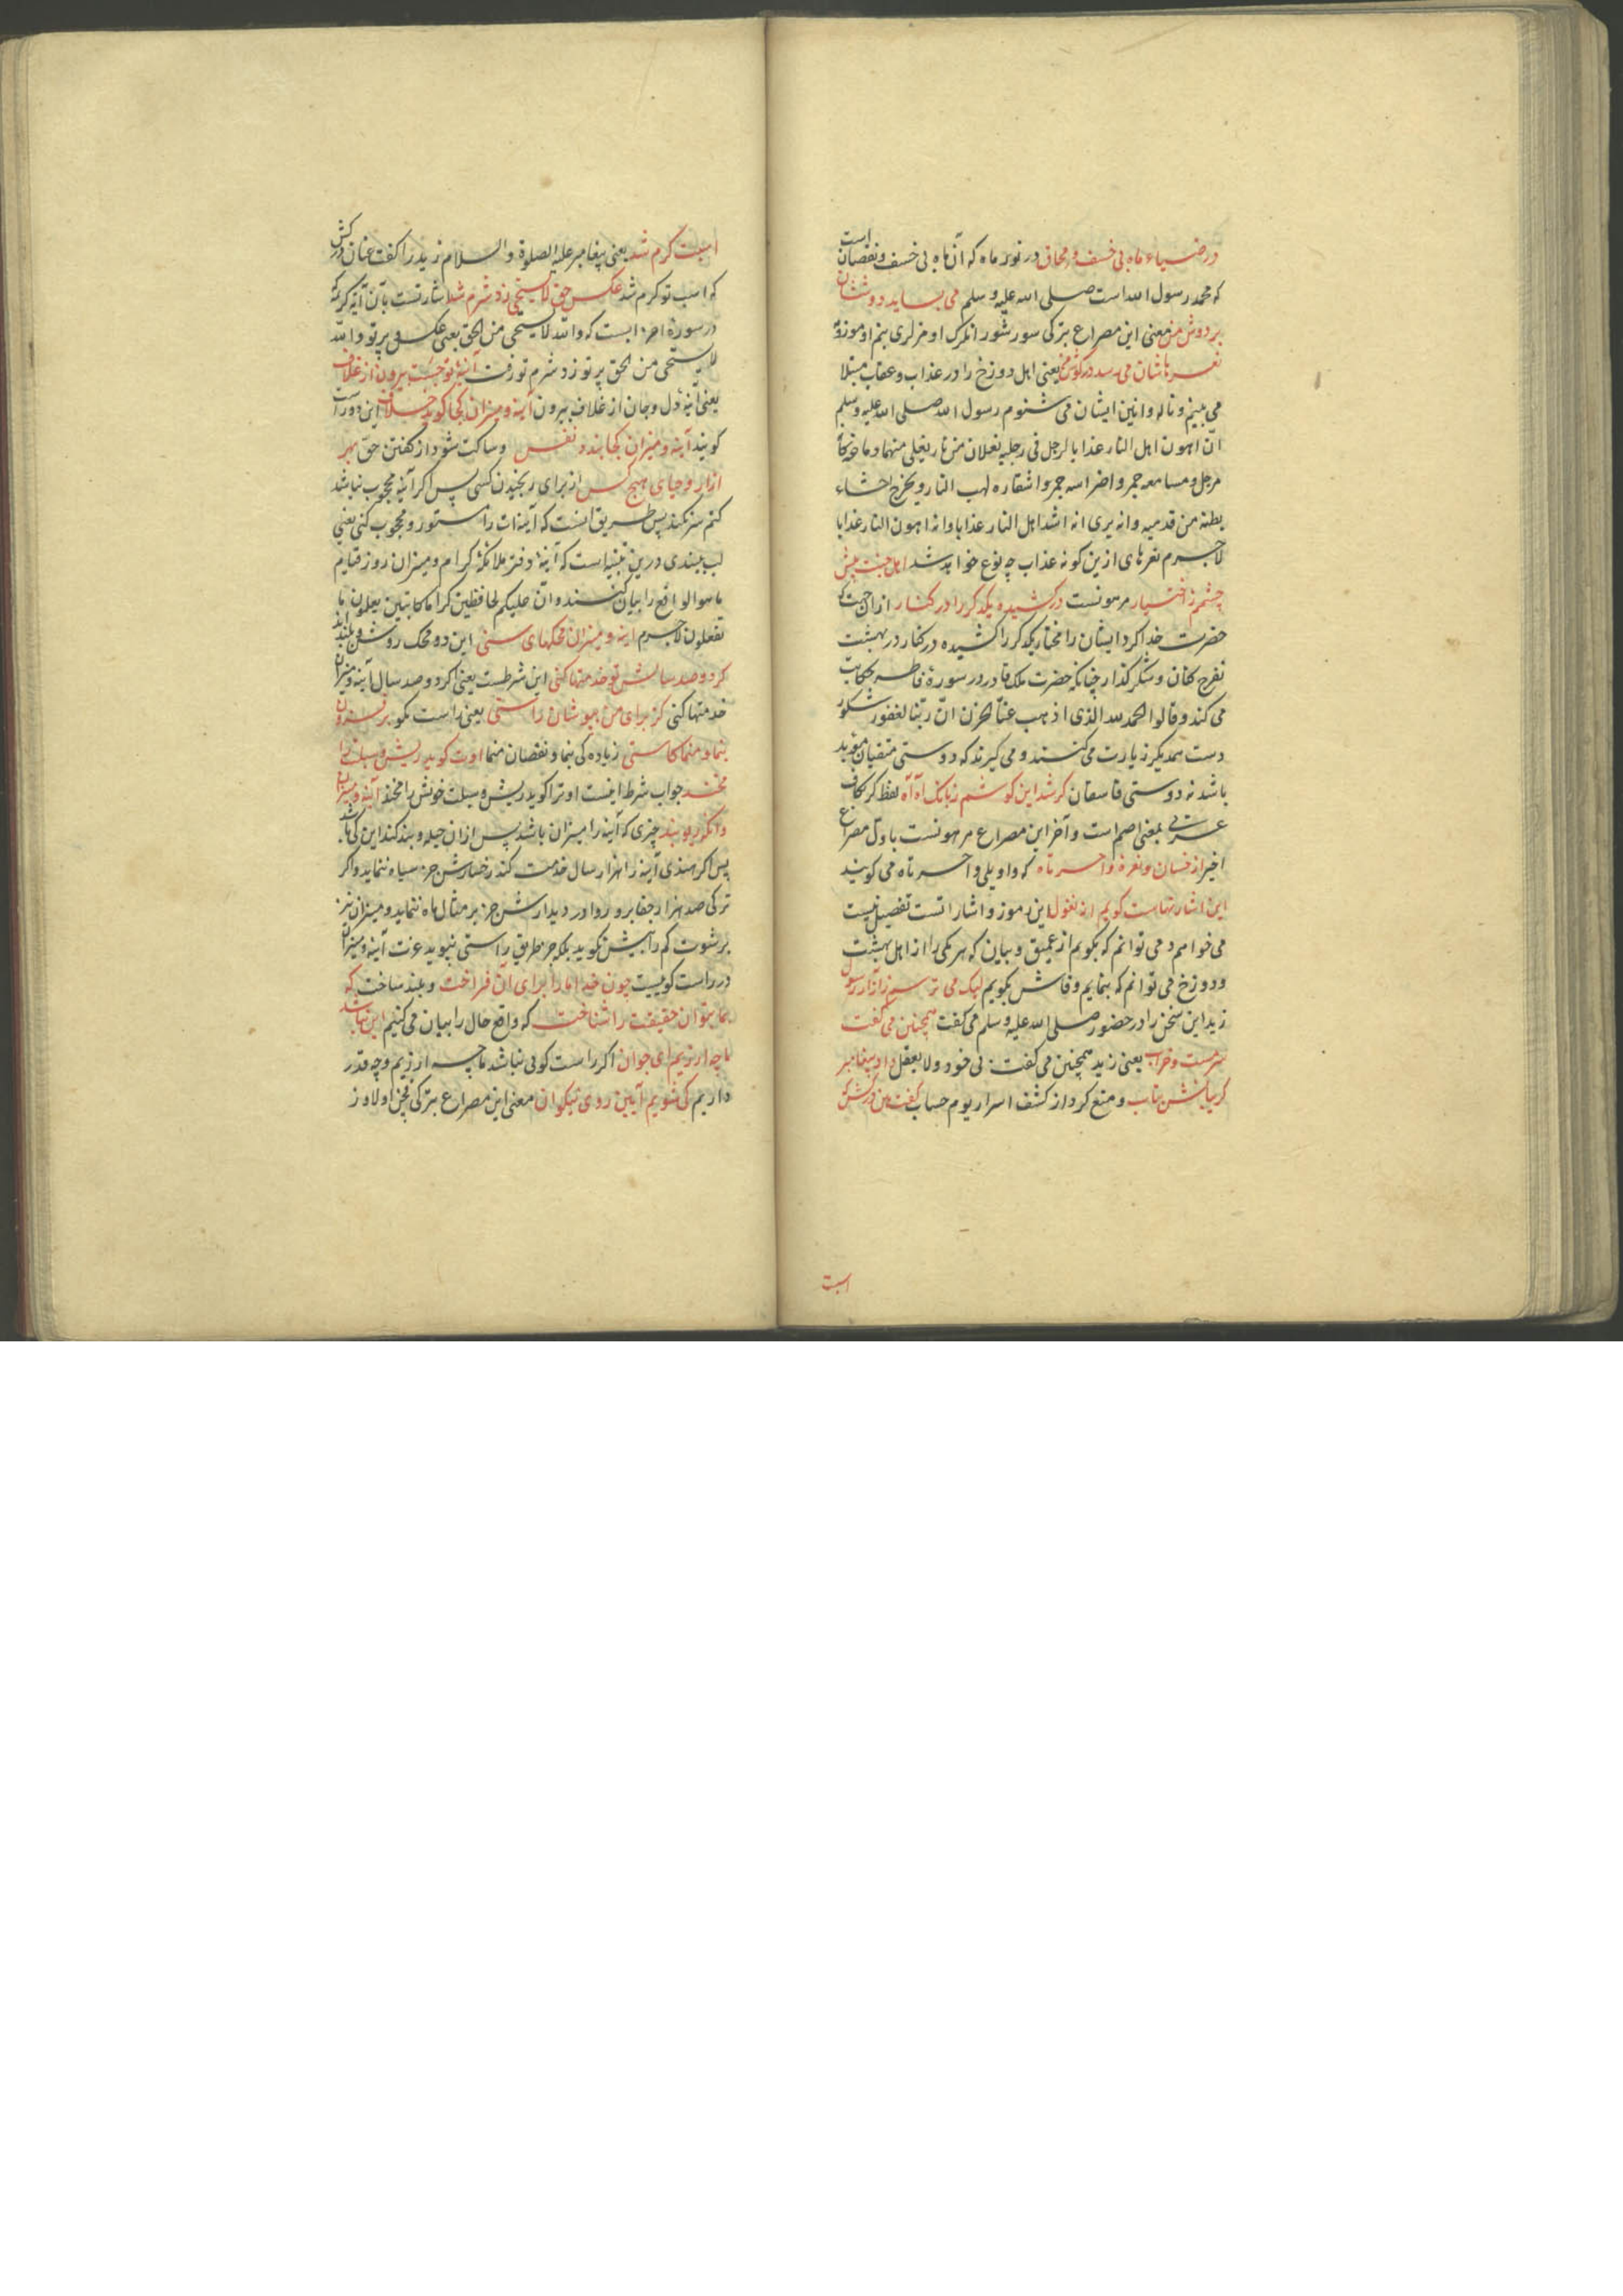 در ضیاء ماه بی خسف و محاق در نور ماه که آن ماه بی خسف و نقصان است
که محمد رسول الله است صلی الله علیه و سلم می بساید دوششان
بر دوش من معنی این مصراع بترکی سورشور انلرک اومزلری بنم اوموزوم
نعرهاشان می رسد در گوش من یعنی اهل دوزخ را در عذاب و عقاب مبتلا
می بینم و ناله و انین ایشان می شنوم رسول الله صلی الله علیه و سلم
انّ اهون اهل النار عذابا لرجل فی رجلیه نعلان من نار یغلی منهما دماغه کأنه
مرجل و مسامعه جمر و اضراسه جمر و اشفاره لهب النار و یخرج احشاء
بطنه من قدمیه و انه یری انه اشد اهل النار عذابا و انه اهون النار عذابا
لاجرم نعرهای ازین کونه عذاب چه نوع خواهد شد اهل جنت پیش
چشمم ز اختیار مرهونست درکشیده یکدکر را در کنار از ان جهت که
حضرت خدا کرد ایشان را مختار یکدکر را کشیده در کنار در بهشت
تفرج کنان و شکر گذار چنانکه حضرت ملک قادر در سورهٔ فاطر حکایت
می کند و قالوا الحمد لله الذی اذهب عنّا الحزن انّ ربّنا لغفور شکور
دست همدیکر زیارت می کنند و می گیرند که دوستی متقیان مؤبد
باشد نه دوستی فاسقان کر شد این کوشم ز بانک آه آه لفظ کر بکاف
عربی بمعنی اصم است و آخر این مصراع مرهونست باول مصراع
اخیر از خسان و نعرهٔ واحسرتاه که واویلی واحسرتاه می گویند
این اشارتهاست گویم از نغول این رموز و اشاراتست تفصیل نیست
می خواهم و می توانم که بگویم از عمیق و بیان که هر یکی را از اهل بهشت
و دوزخ می توانم که بنمایم و فاش بگویم لیک می ترسم ز آزار رسول
زید این سخن را در حضور صلی الله علیه و سلم می گفت همچنین می گفت
سرمست و خراب یعنی زید همچنین می گفت بی خود و لا یعقل داد پیغامبر
گریبانش بتاب و منع کرد از کشف اسرار یوم حساب گفت هین درکش که
اسبت
اسبت گرم شد یعنی پیغامبر علیه الصلوة و السلام زید را گفت عنان درکش
که اسب تو گرم شد عکس حق لا یستحی زد شرم شد اشارتست بآن آیهٔ کریمه
در سورهٔ احزابست که والله لا یستحی من الحق یعنی عکس و پرتو والله
لا یستحی من الحق بر تو زد شرم تو رفت آینهٔ تو جست بیرون از غلاف
یعنی آینهٔ دل و جان از غلاف بیرون آینه و میزان کجا گوید خلاف این دو راست
گویند آینه و میزان کجا بندد نفس و ساکت شود از گفتن حق بهر
آزار و حیای هیچ کس از برای رنجیدن کسی پس اگر آینه محجوب نباشد
کتم سر نکند پس طریق اینست که آینه‌ات را مستور و محجوب کنی یعنی
لب ببندی درین تنبیه است که آینهٔ دفتر ملائکهٔ کرام و میزان روز قیام
ما هو الواقع را بیان کنند و انّ علیکم لحافظین کراما کاتبین یعلمون ما
تفعلون لاجرم آینه و میزان محکهای سنی این دو محک روشن و بلند اند
گر دو صد سالش تو خدمتها کنی این شرطست یعنی اگر دو صد سال آینه و میزان
خدمتها کنی کز برای من بپوشان راستی یعنی راست مگو بر فزون
بنما و منما کاستی زیاده کی بنما و نقصان منما اوت گوید ریش و سبلت را
مخند جواب شرط اینست او ترا گوید ریش و سبلت خویش را مخند آینه و میزان
وانگه ریو و بند چیزی که آینه را میزان باشد پس از ان حیله و بند کند این کی باشد
پس اگر هندی آینه را هزار سال خدمت کند رخسارش جز سیاه ننماید و اگر
ترکی صد هزار جفا برو روا دارد دیدارش جز بر مثال ماه ننماید و میزان نیز
برشوت کم را بیش نگوید بلکه جز طریق راستی نپوید عزت آینه و میزان
در راست گوییست چون خدا ما را برای آن فراخت و بلند ساخت که
بما بتوان حقیقت را شناخت که واقع حال را بیان می کنیم این نباشد
ما چه ارزیم ای جوان اگر راست گویی نباشد ما چه ارزیم و چه قدر
داریم کی شویم آیین روی نیکوان معنی این مصراع بترکی قچن اولاوز